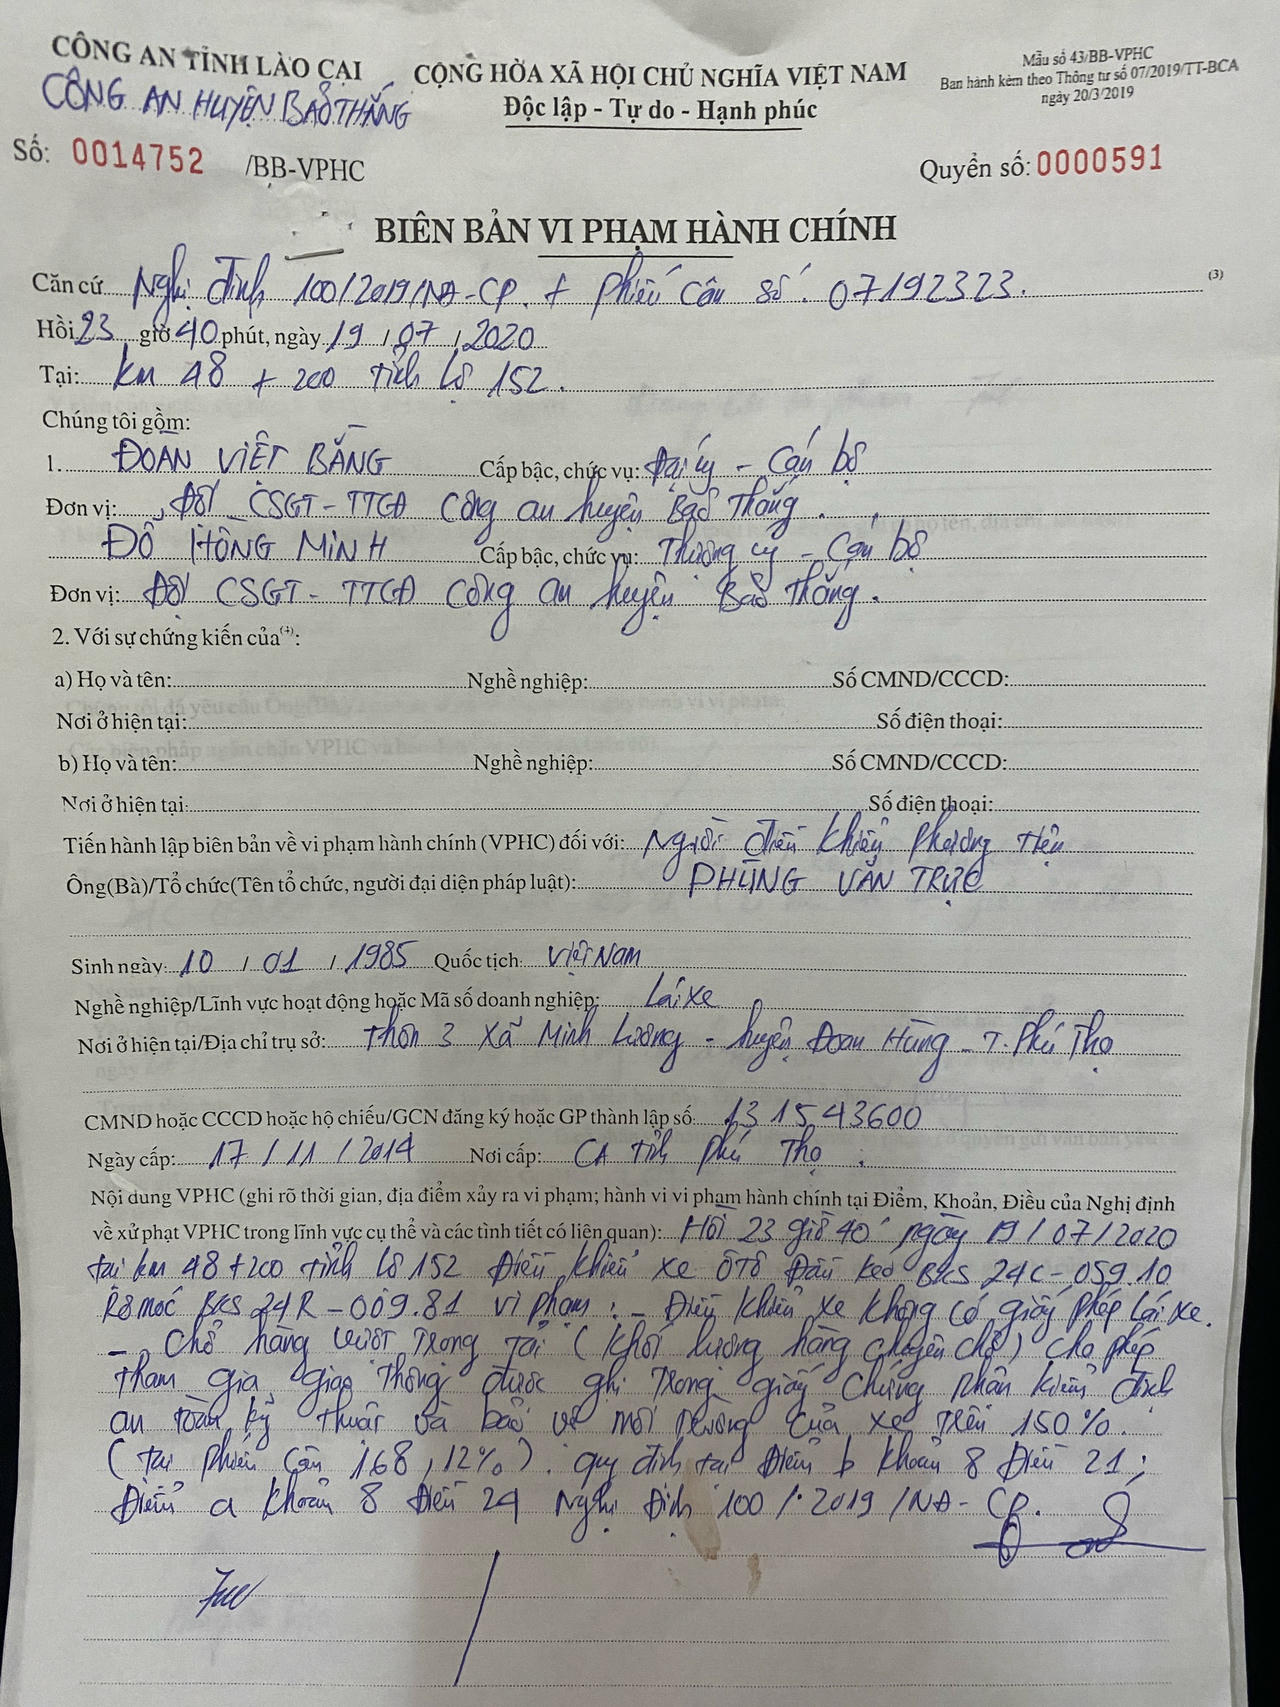 CÔNG AN TỈNH LÀO CAI
CÔNG AN HUYỆN BẢO THẮNG
CỘNG HÒA XÃ HỘI CHỦ NGHĨA VIỆT NAM
Độc lập - Tự do - Hạnh phúc
Mẫu số 43/BB-VPHC
Ban hành kèm theo Thông tư số 07/2019/TT-BCA
ngày 20/3/2019
Số: 0014752 /BB-VPHC
Quyển số: 0000591
BIÊN BẢN VI PHẠM HÀNH CHÍNH
Căn cứ Nghị định 100/2019/NĐ-CP. + Phiếu cân số: 07192323. (3)
Hồi 23 giờ 40 phút, ngày 19 / 07 / 2020
Tại: km 48 + 200 tỉnh lộ 152.
Chúng tôi gồm:
1. ĐOÀN VIỆT BẰNG Cấp bậc, chức vụ: Đại úy - Cán bộ
Đơn vị: Đội CSGT - TTCĐ Công an huyện Bảo Thắng.
ĐỖ HỒNG MINH Cấp bậc, chức vụ: Thượng úy - Cán bộ
Đơn vị: Đội CSGT - TTCĐ Công an huyện Bảo Thắng.
2. Với sự chứng kiến của(4):
a) Họ và tên: Nghề nghiệp: Số CMND/CCCD:
Nơi ở hiện tại: Số điện thoại:
b) Họ và tên: Nghề nghiệp: Số CMND/CCCD:
Nơi ở hiện tại: Số điện thoại:
Tiến hành lập biên bản về vi phạm hành chính (VPHC) đối với: Người điều khiển phương tiện
Ông(Bà)/Tổ chức(Tên tổ chức, người đại diện pháp luật): PHÙNG VĂN TRỰC
Sinh ngày: 10 / 01 / 1985 Quốc tịch: Việt NAM
Nghề nghiệp/Lĩnh vực hoạt động hoặc Mã số doanh nghiệp: Lái xe
Nơi ở hiện tại/Địa chỉ trụ sở: Thôn 3 Xã Minh Lương - huyện Đoan Hùng - T. Phú Thọ
CMND hoặc CCCD hoặc hộ chiếu/GCN đăng ký hoặc GP thành lập số: 131543600
Ngày cấp: 17 / 11 / 2014 Nơi cấp: CA tỉnh Phú Thọ.
Nội dung VPHC (ghi rõ thời gian, địa điểm xảy ra vi phạm; hành vi vi phạm hành chính tại Điểm, Khoản, Điều của Nghị định
về xử phạt VPHC trong lĩnh vực cụ thể và các tình tiết có liên quan): Hồi 23 giờ 40' ngày 19/07/2020
tại km 48+200 tỉnh lộ 152 Điều khiển xe ôtô Đầu kéo BKS 24C-059.10
Rơ moóc BKS 24R-009.81 vi phạm: - Điều khiển xe không có giấy phép lái xe.
- Chở hàng vượt trọng tải (Khối lượng hàng chuyên chở) cho phép
tham gia giao thông được ghi trong giấy chứng nhận kiểm định
an toàn kỹ thuật và bảo vệ môi trường của xe trên 150%.
(tại phiếu cân 168,12%). quy định tại Điểm b khoản 8 Điều 21;
Điểm a khoản 8 Điều 24 Nghị Định 100/2019/NĐ-CP.